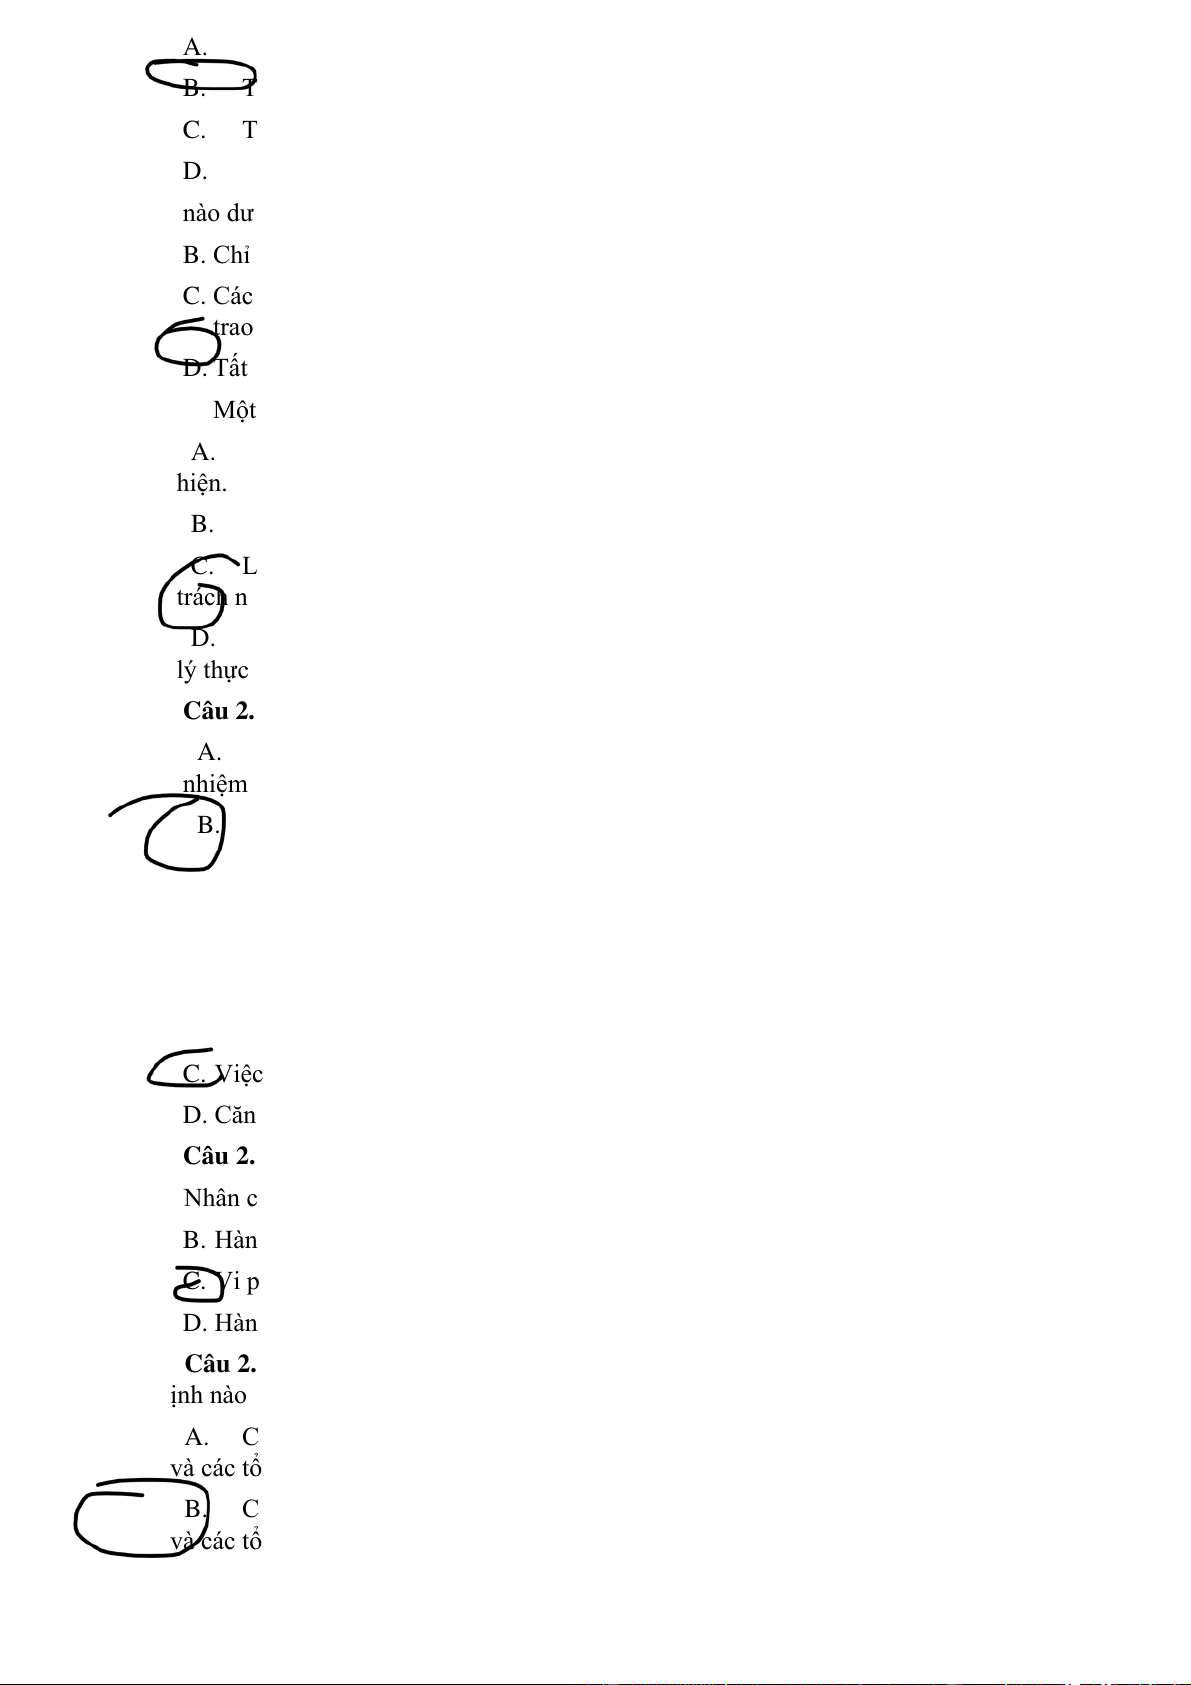 A.
B. T
C. T
D.
nào dư
B. Chỉ
C. Các
trao
D. Tất
Một
A.
hiện.
B.
C. L
trách n
D.
lý thực
Câu 2.
A.
nhiệm
B.
C. Việc
D. Căn
Câu 2.
Nhân c
B. Hàn
C. Vi p
D. Hàn
Câu 2.
ịnh nào
A. C
và các tổ
B. C
và các tổ